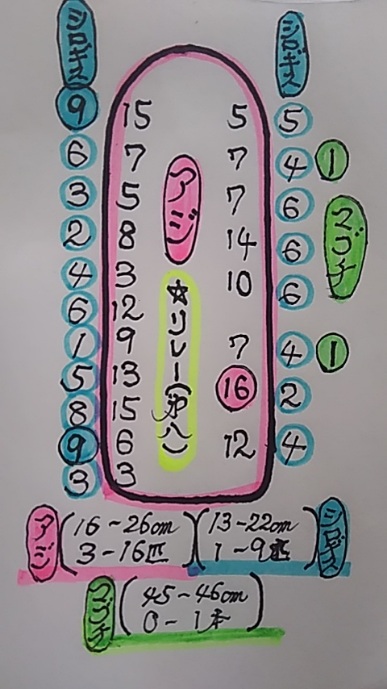 シロギス シロギス
9 15 5 5
6 7 7 4 1
3 5 7 6
2 8 14 6
4 3 10 6
6 12
1 9 7 4 1
5 13 16 2
8 15
9 6 12 4
3 3
アジ
☆リレー(八)
マゴチ
アジ (16~26cm 3-16匹) (13-22cm 1-9匹) シロギス
マゴチ (45-46cm 0-1本)